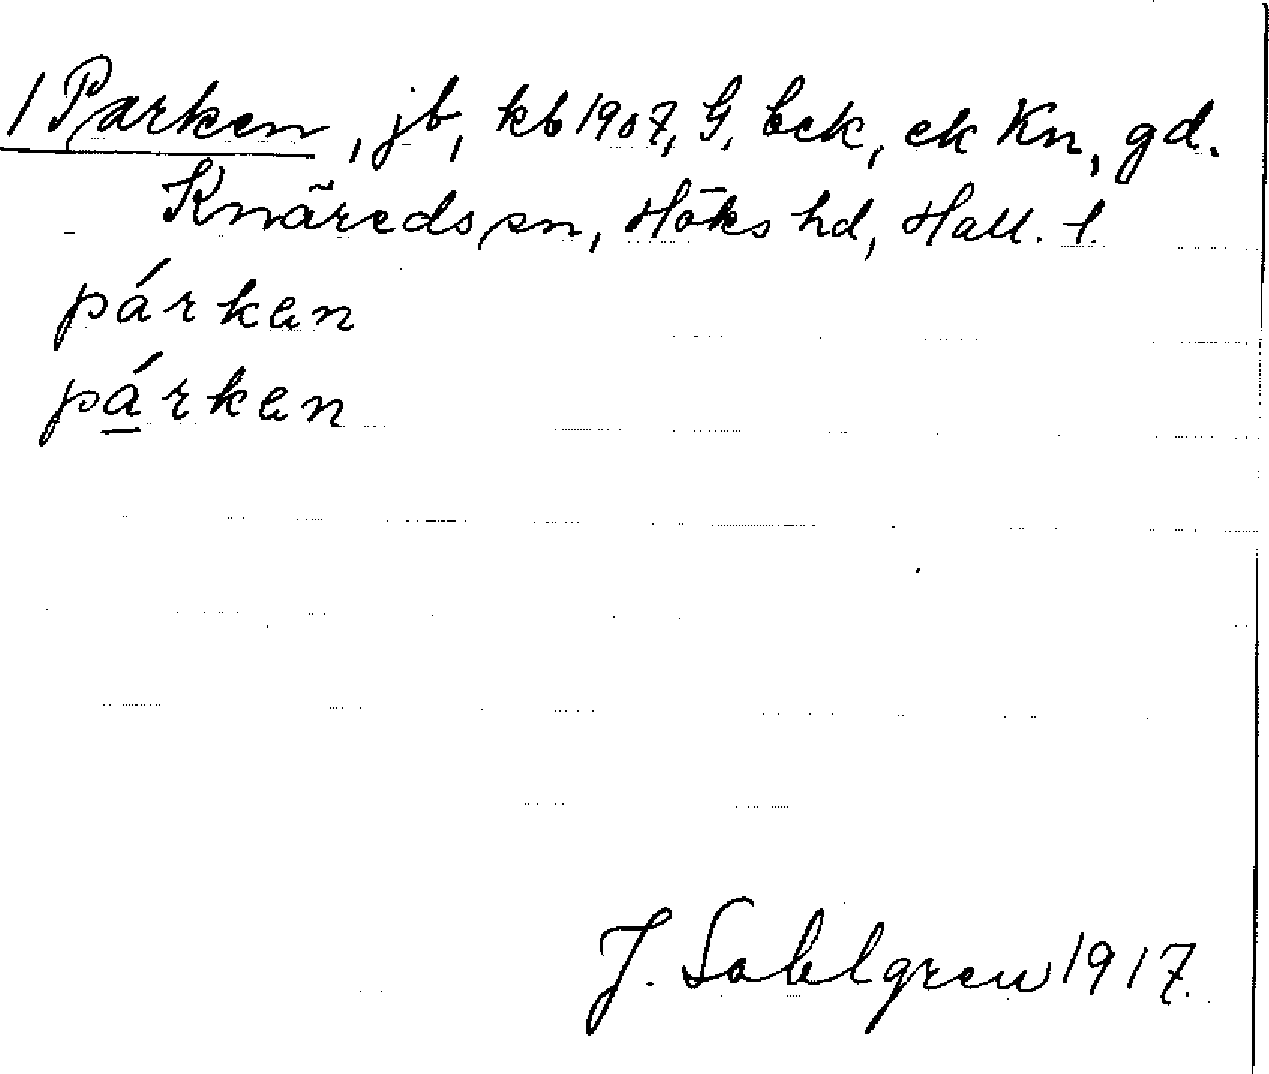 1 Parken, jb, kb 1907, G, bck, ek Kn, gd.
Knäreds sn, Höks hd, Hall. l.
párkɐn
pá̱rkɐn
J. Sahlgren 1917.